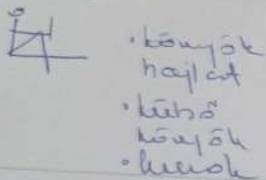 • könyök
hajlat
• külső
könyök